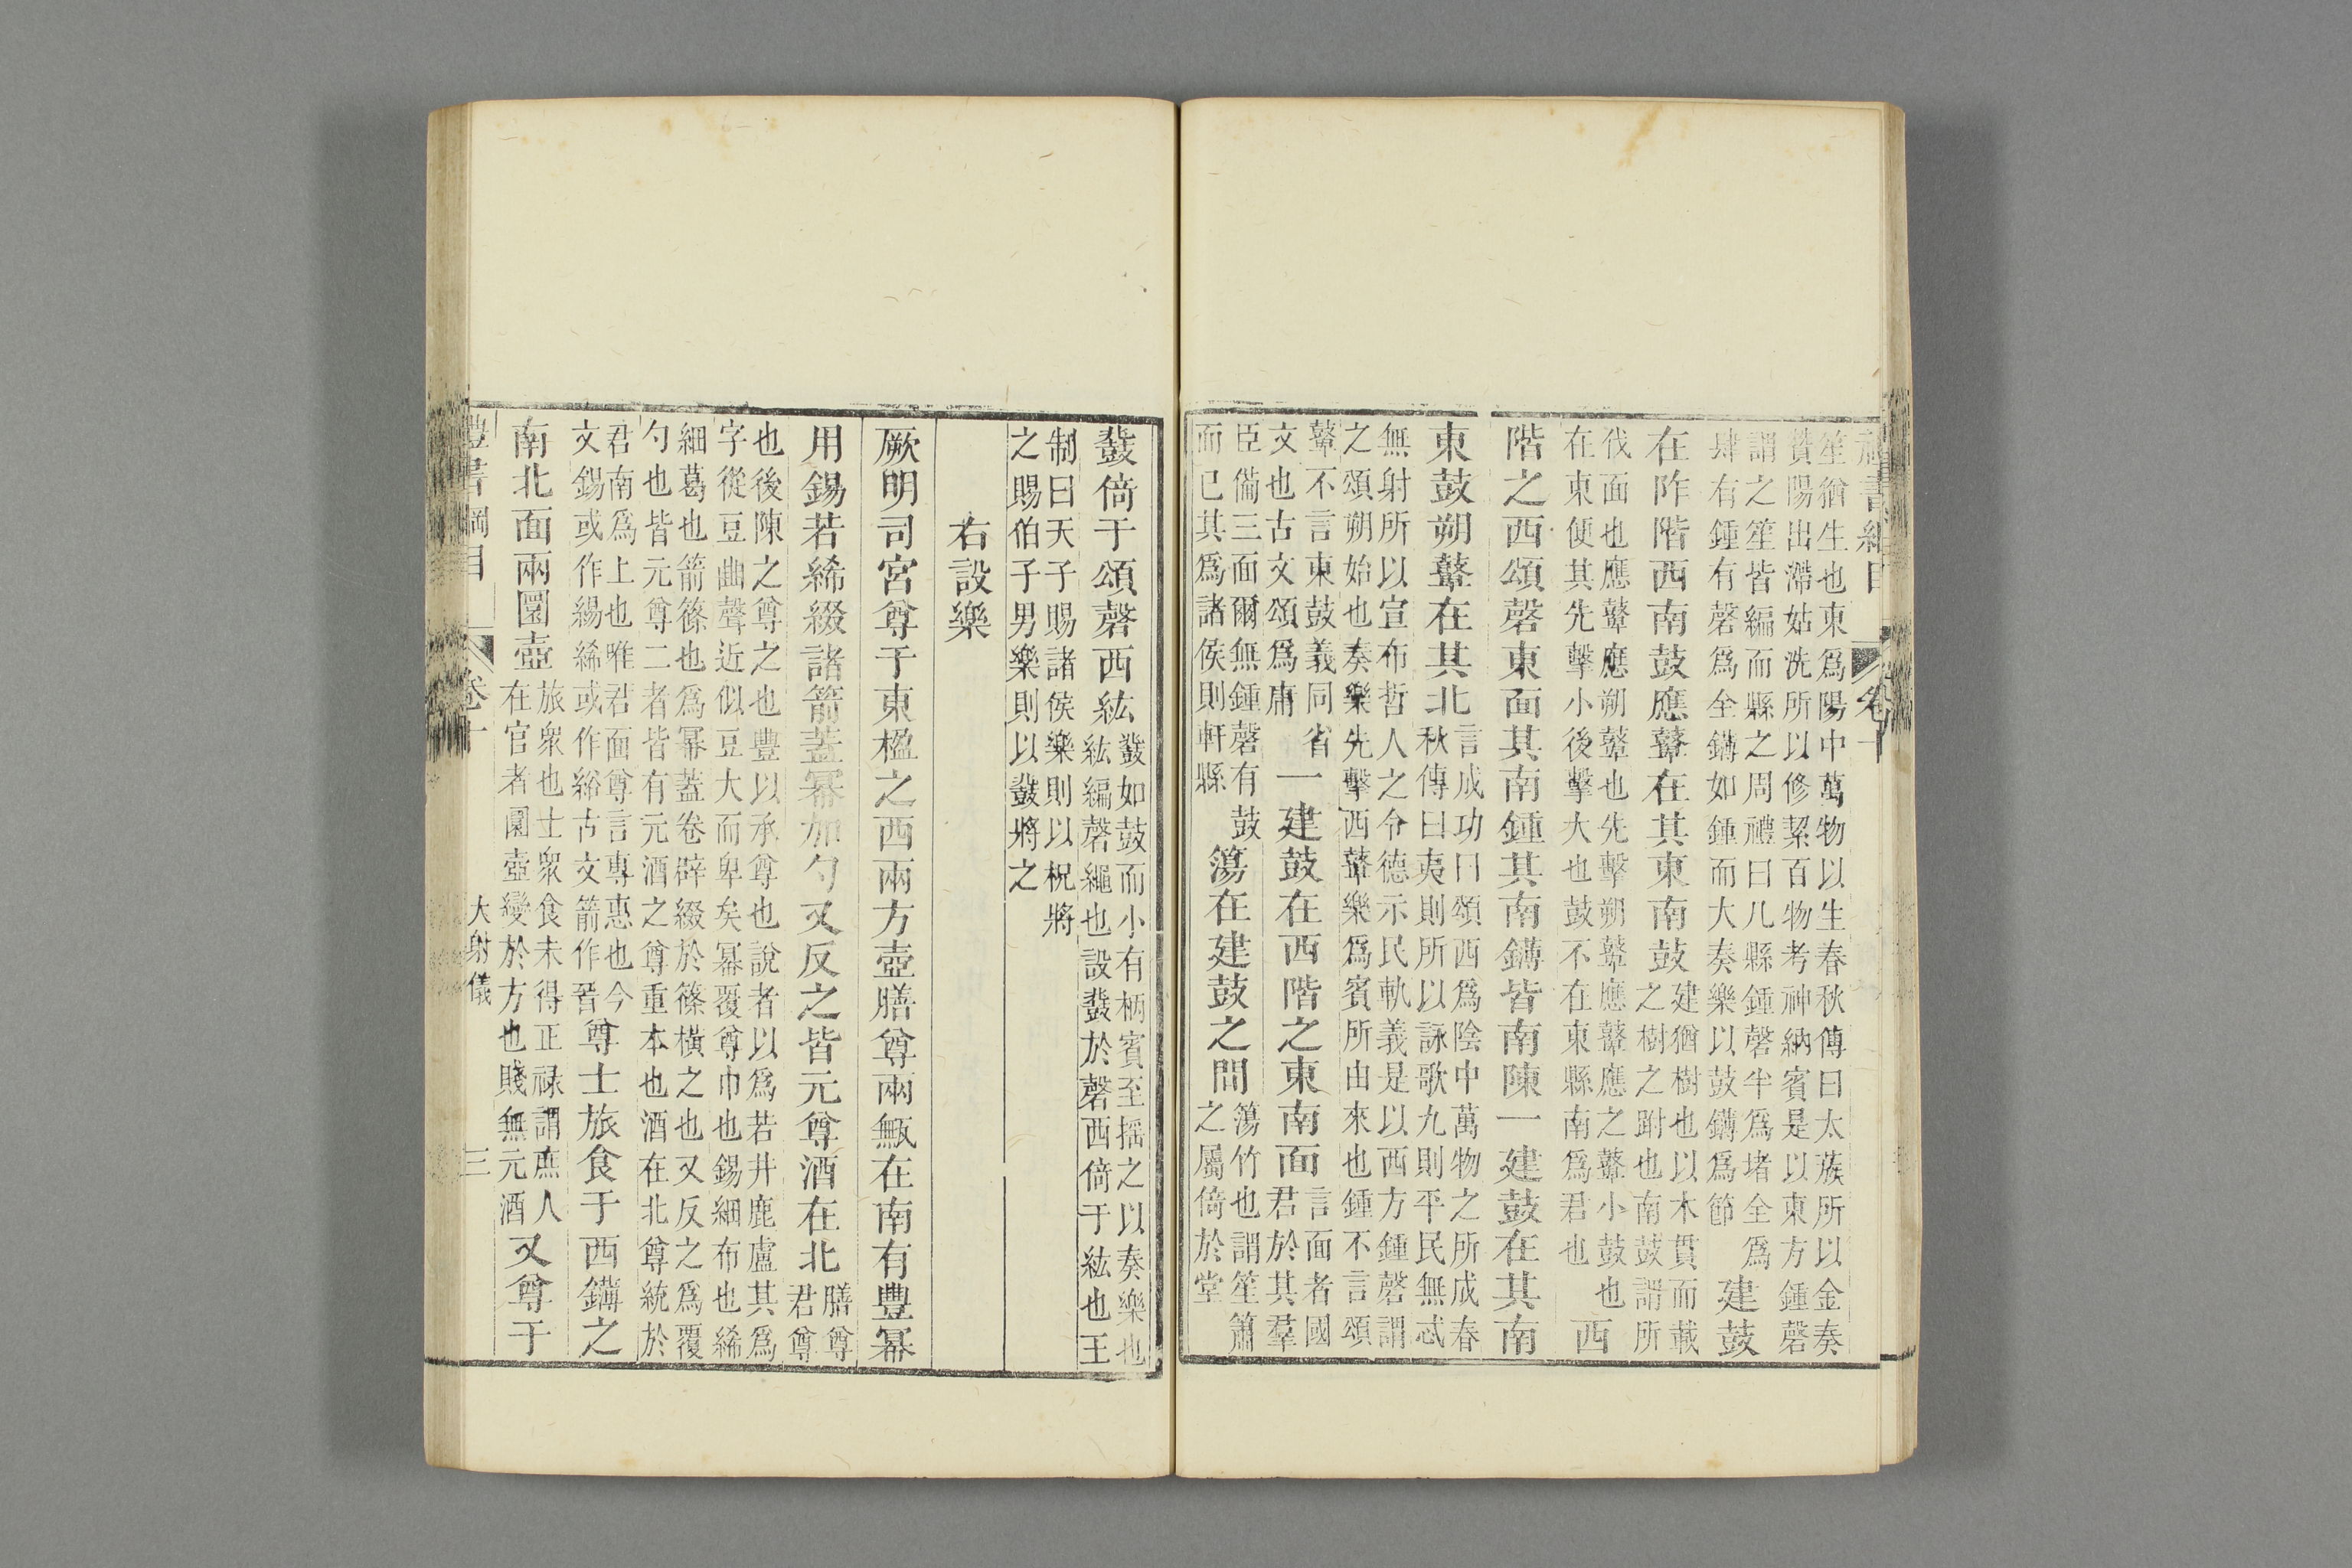 禮書綱目 卷十
笙猶生也東爲陽中萬物以生春秋傳曰太蔟所以金奏
贊陽出滯姑洗所以修絜百物考神納賓是以東方鍾磬
謂之笙皆編而縣之周禮曰凡縣鍾磬半爲堵全爲
肆有鍾有磬爲全鑮如鍾而大奏樂以鼓鑮爲節
建鼓
在阼階西南鼓應鼙在其東南鼓
建猶樹也以木貫而載
之樹之跗也南鼓謂所
伐面也應鼙應朔鼙也先擊朔鼙應鼙應之鼙小鼓也
在東便其先擊小後擊大也鼓不在東縣南爲君也
西
階之西頌磬東面其南鍾其南鑮皆南陳一建鼓在其南
東鼓朔鼙在其北
言成功曰頌西爲陰中萬物之所成春
秋傳曰夷則所以詠歌九則平民無忒
無射所以宣布哲人之令德示民軌義是以西方鍾磬謂
之頌朔始也奏樂先擊西鼙樂爲賓所由來也鍾不言頌
鼙不言東鼓義同省
文也古文頌爲庸
一建鼓在西階之東南面
言面者國
君於其羣
臣備三面爾無鍾磬有鼓
而已其爲諸侯則軒縣
簜在建鼓之間
簜竹也謂笙簫
之屬倚於堂
鼗倚于頌磬西紘
鼗如鼓而小有柄賓至搖之以奏樂也
紘編磬繩也設鼗於磬西倚于紘也王
制曰天子賜諸侯樂則以柷將
之賜伯子男樂則以鼗將之
右設樂
厥明司宮尊于東楹之西兩方壺膳尊兩甒在南有豐冪
用錫若絺綴諸箭蓋冪加勺又反之皆元尊酒在北
膳尊
君尊
也後陳之尊之也豐以承尊也說者以爲若井鹿盧其爲
字從豆曲聲近似豆大而卑矣冪覆尊巾也錫細布也絺
細葛也箭篠也爲冪蓋卷辟綴於篠橫之也又反之爲覆
勺也皆元尊二者皆有元酒之尊重本也酒在北尊統於
君南爲上也唯君面尊言專惠也今
文錫或作緆絺或作綌古文箭作晉
尊士旅食于西鑮之
南北面兩圜壺
旅衆也士衆食未得正祿謂庶人
在官者圜壺變於方也賤無元酒
又尊于
禮書綱目 卷十 大射儀 三